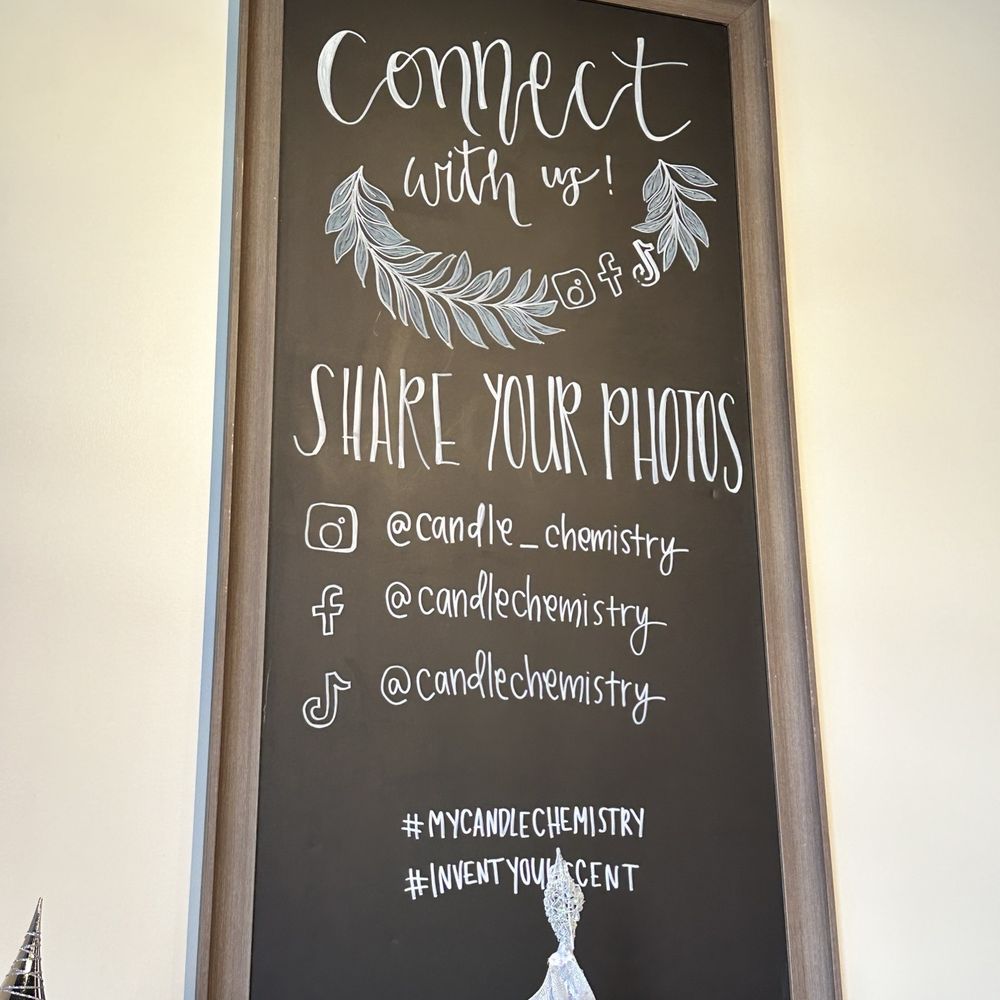 Connect
with us!
SHARE YOUR PHOTOS
@candle_chemistry
@candlechemistry
@candlechemistry
#MYCANDLECHEMISTRY